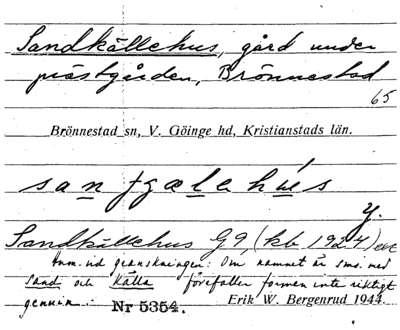 Sandkällehus, gård under
prästgården, Brönnestad
65
Brönnestad sn, V. Göinge hd, Kristianstads län.
y.
Sandkällehus G9, (kb. 1924)
Anm. vid granskningen: Om namnet är sms. med
sand och källa förefaller formen inte riktigt
genuin.
Nr 5354. Erik W. Bergenrud 1944.